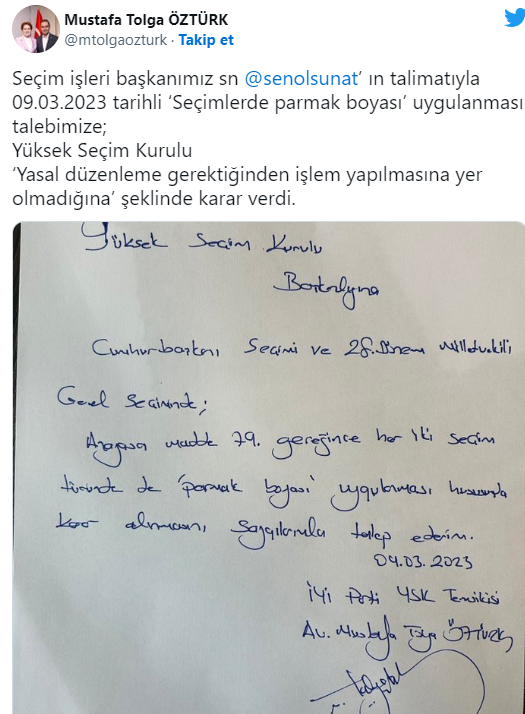 Mustafa Tolga ÖZTÜRK
@mtolgaozturk · Takip et
Seçim işleri başkanımız sn @senolsunat' ın talimatıyla
09.03.2023 tarihli 'Seçimlerde parmak boyası' uygulanması
talebimize;
Yüksek Seçim Kurulu
'Yasal düzenleme gerektiğinden işlem yapılmasına yer
olmadığına' şeklinde karar verdi.
Yüksek Seçim Kurulu
Başkanlığına
Cumhurbaşkanı Seçimi ve 28. Dönem Milletvekili
Genel Seçiminde;
Anayasa madde 79. gereğince her iki seçim
türünde de 'parmak boyası' uygulanması hususunda
karar alınmasını saygılarımla talep ederim.
09.03.2023
İYİ Parti YSK Temsilcisi
Av. Mustafa Tolga ÖZTÜRK